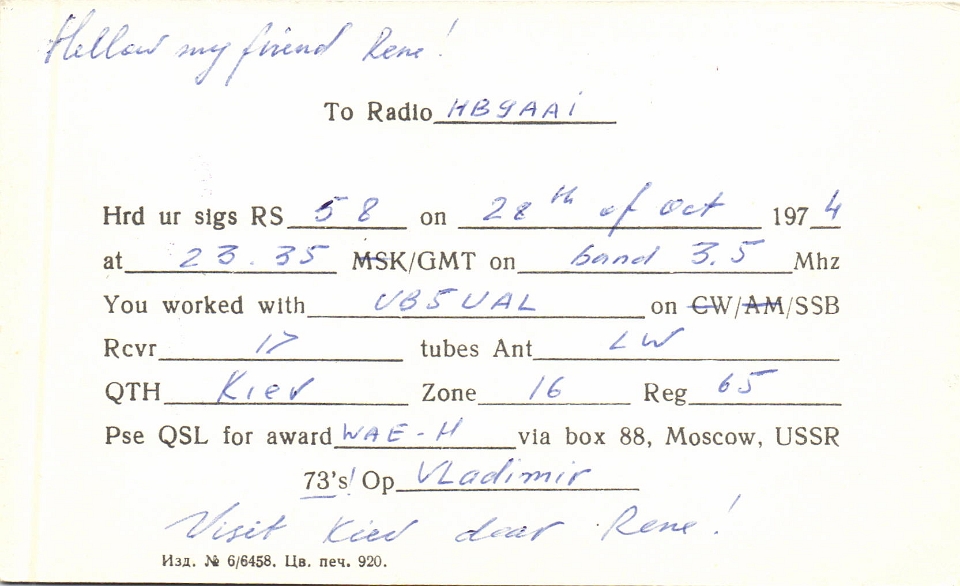 Hellow my friend Rene!
To Radio HB9AAI
Hrd ur sigs RS 58 on 28th of Oct 1974
at 23.35 MSK/GMT on band 3.5 Mhz
You worked with UB5UAL on CW/AM/SSB
Rcvr 17 tubes Ant LW
QTH Kiev Zone 16 Reg 65
Pse QSL for award WAE-H via box 88, Moscow, USSR
73's! Op Vladimir
Visit Kiev dear Rene!
Изд. № 6/6458. Цв. печ. 920.